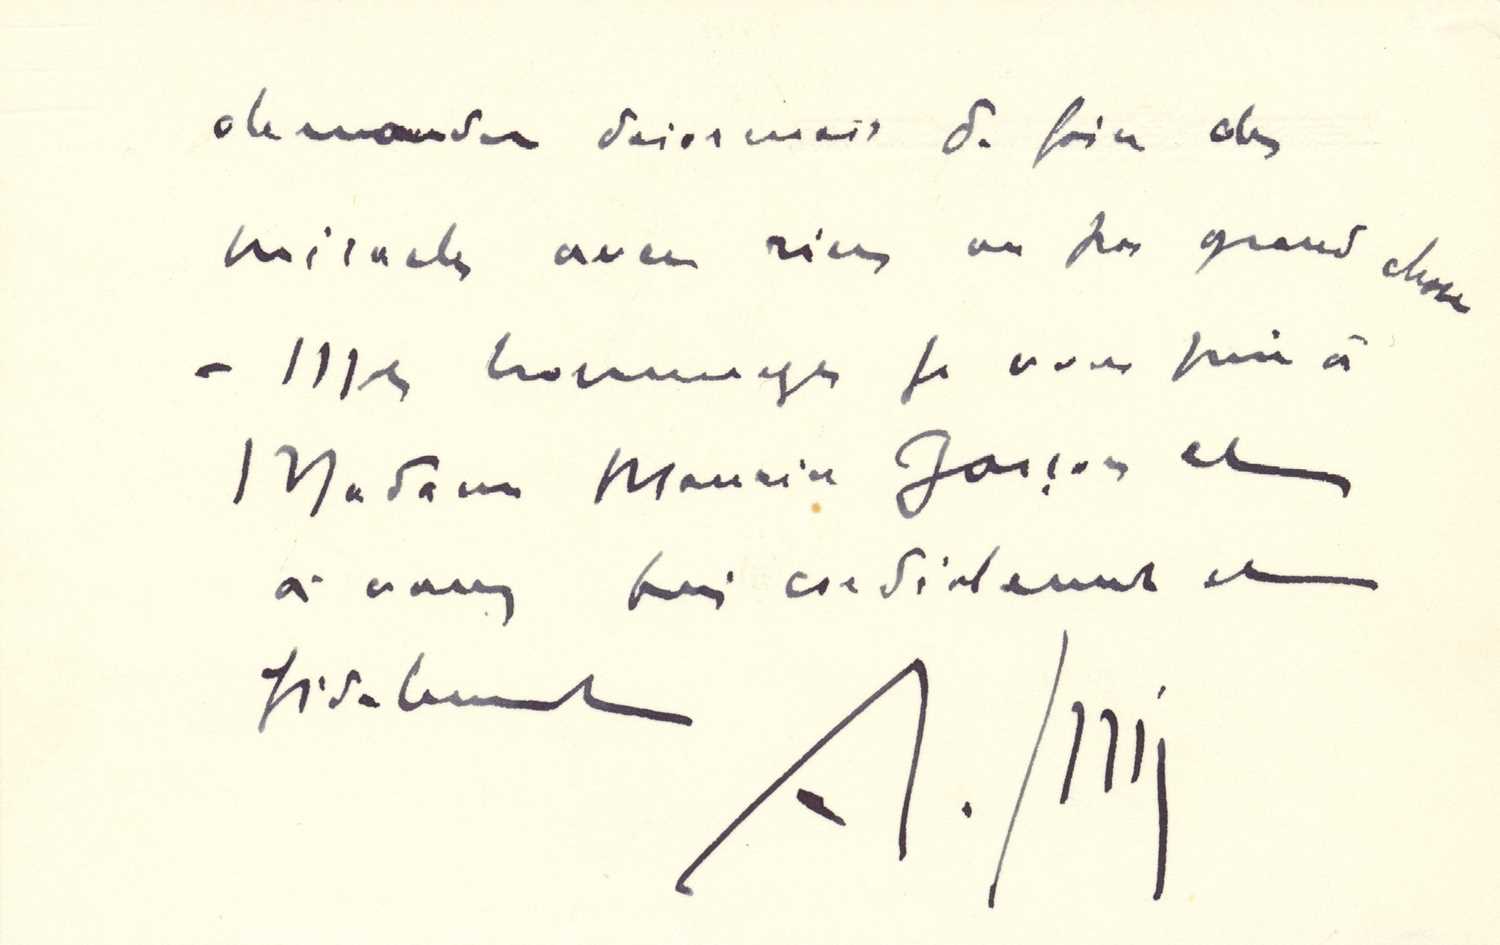 demander désormais de faire des
miracles avec rien ou pas grand chose
- Mes hommages je vous prie à
Madame Maurice Garçon et
à vous bien cordialement et
fidèlement
A.